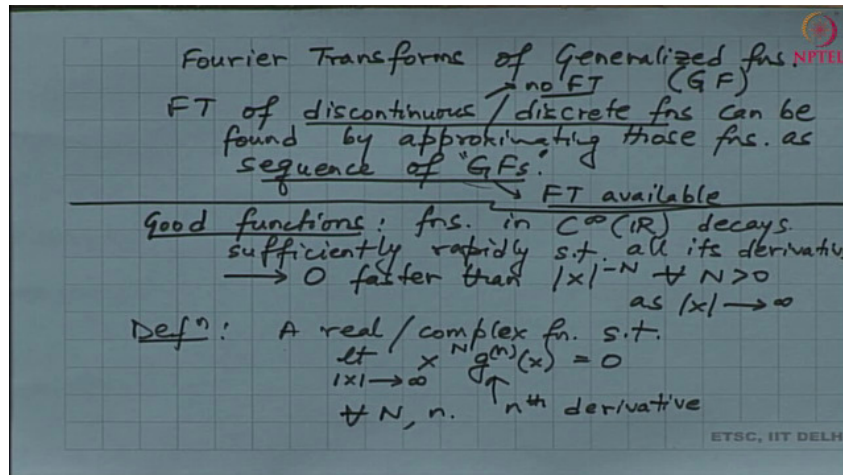 Fourier Transforms of Generalized fns.
NPTEL
→ no FT (GF)
FT of discontinuous / discrete fns can be
found by approximating those fns. as
sequence of "GFs."
→ FT available
Good functions: fns. in C^∞(IR) decays
sufficiently rapidly s.t. all its derivative
→ 0 faster than |x|^-N ∀ N>0
as |x| → ∞
Defⁿ: A real / complex fn. s.t.
lt x^N g^(n)(x) = 0
|x| → ∞
∀ N, n. nth derivative
ETSC, IIT DELH